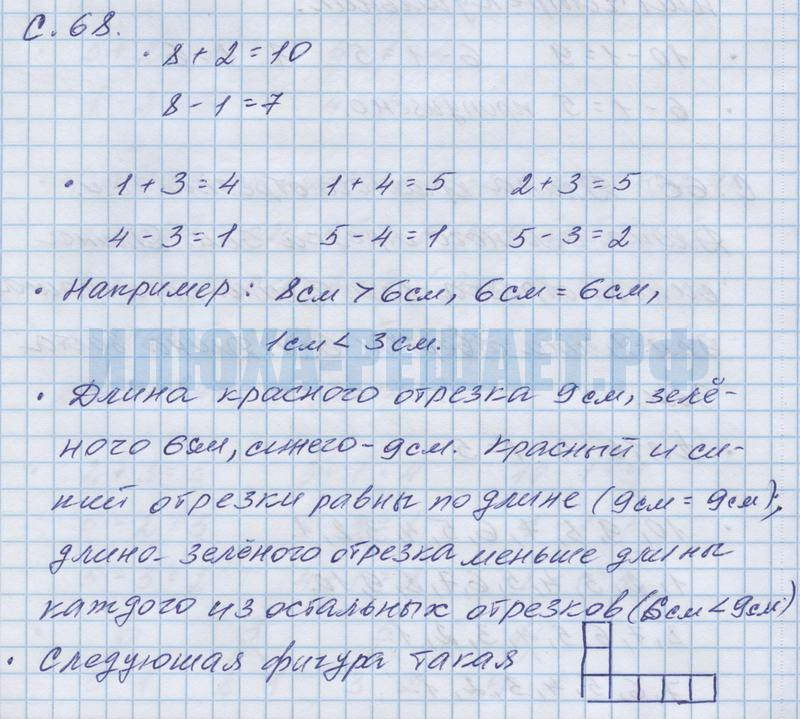 С. 68.
• 8 + 2 = 10
8 - 1 = 7
• 1 + 3 = 4 1 + 4 = 5 2 + 3 = 5
4 - 3 = 1 5 - 4 = 1 5 - 3 = 2
• Например: 8см > 6см, 6см = 6см,
1см < 3см.
ИЛЮХА-РЕШАЕТ.РФ
• Длина красного отрезка 9см, зелё-
ного 6см, синего - 9см. Красный и си-
ний отрезки равны по длине (9см = 9см);
длина зелёного отрезка меньше длины
каждого из остальных отрезков (6см < 9см)
• Следующая фигура такая